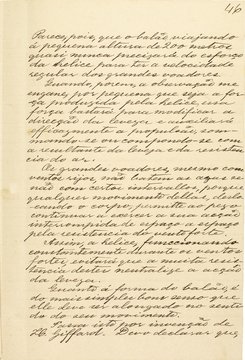 46
Parece, pois, que o balão viajando
á pequena altura de 200 metros
quasi nunca precizará do esforço
da helice para ter a velocidade
regular dos grandes voadores.
Quando, porem, a observação me
engane, por pequena que seja a for-
ça produzida pela helice, essa
força bastará para modificar a
direcção da lufa, e auxiliará
efficazmente a propulsão, som-
mando-se ou compondo-se com
a resultante da lufa e da resisten-
cia do ar.
Os grandes voadores, mesmo com
ventos rijos, não batem as azas se-
não com certos intervallos, porque
qualquer movimento dellas, deslo-
cando o corpo, permitte ao peso
continuar a exercer a sua acção
interrompida de espaço a espaço
pela resistencia do vento forte.
Assim, a helice, funccionando
constantemente durante os ventos
fortes, evitará que a muita resis-
tencia destes neutralize a acção
da
Quanto á forma do balão, é
do mais simples bom senso que
elle deve ser alongado no senti-
do do seu movimento.
Passa isto por invenção de
H. Giffard. Devo declarar que,